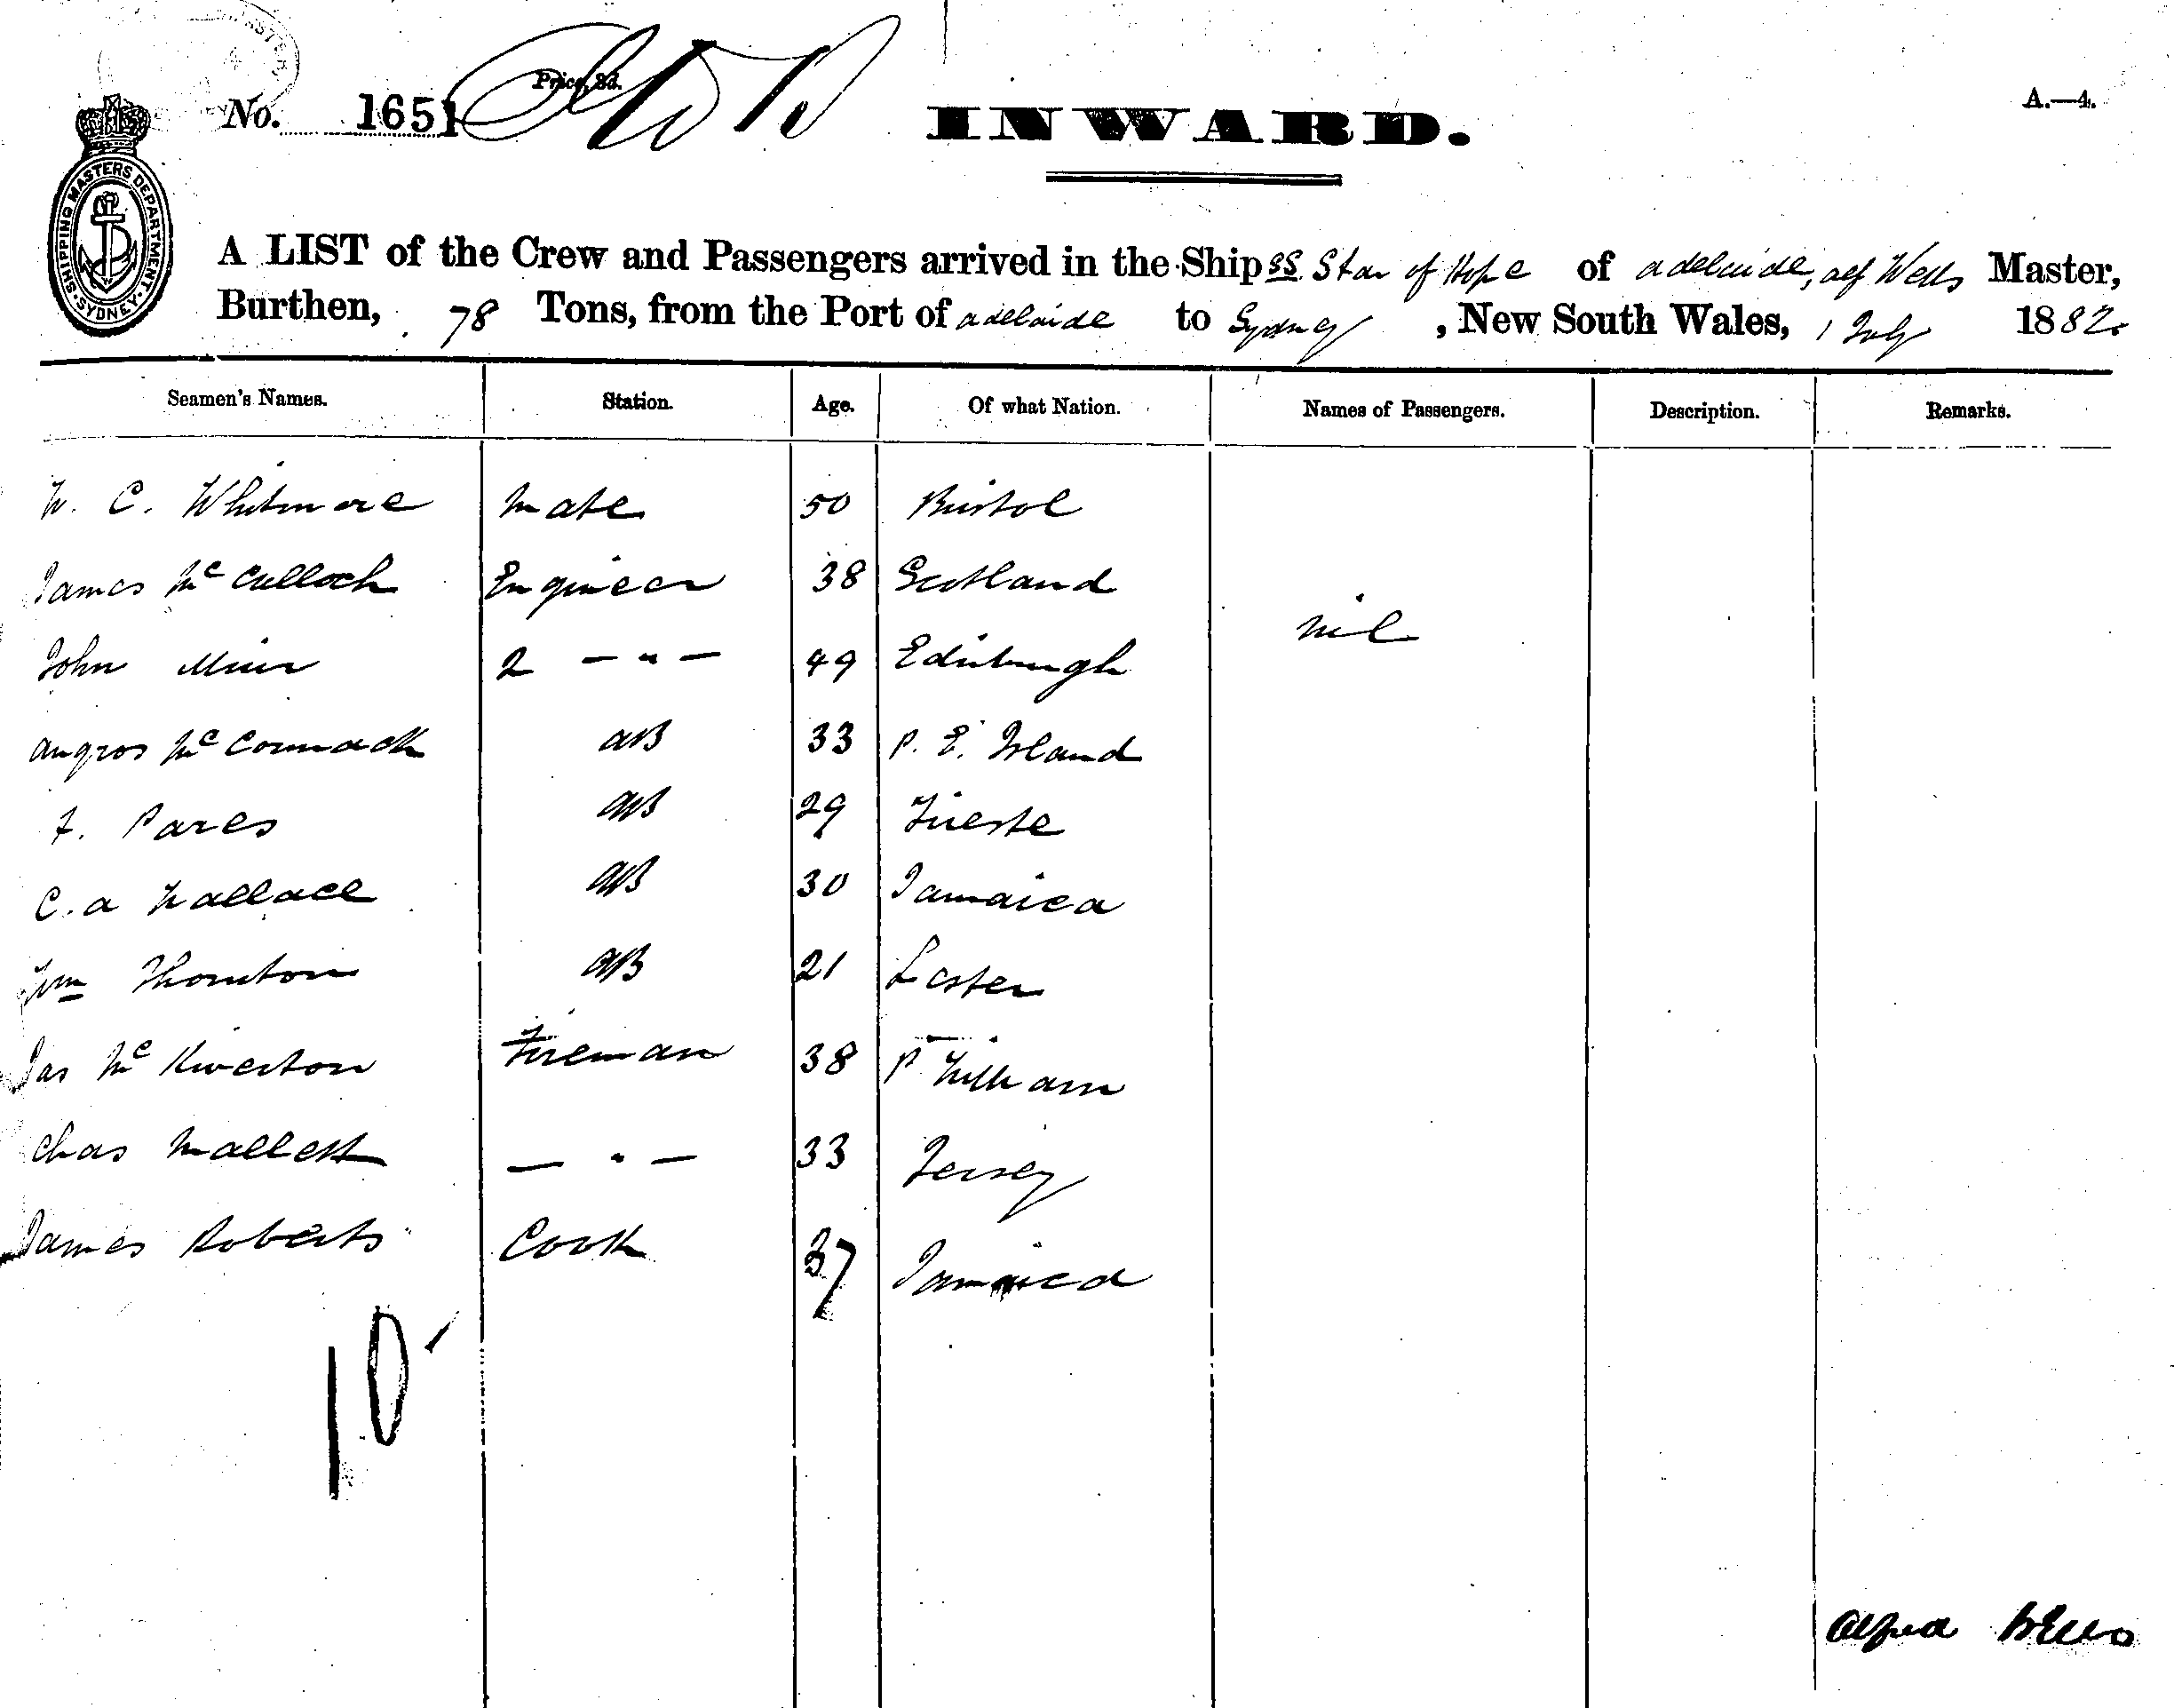 No. 1651
Price, 3d.
INWARD.
A.—4.
SHIPPING MASTERS DEPARTMENT. SYDNEY.
A LIST of the Crew and Passengers arrived in the Ship SS Star of Hope of adelaide, alf Wells Master,
Burthen, 78 Tons, from the Port of adelaide to Sydney, New South Wales, 1 July 1882.
Seamen's Names. Station. Age. Of what Nation. Names of Passengers. Description. Remarks.
W. C. Whitmore Mate 50 Bristol
James McCulloch Engineer 38 Scotland
nil
John Muir 2 — " — 49 Edinburgh
angros McCormack aB 33 P. E. Island
F. Pares aB 29 Trieste
C. a Wallace aB 30 Jamaica
Wm Thornton aB 21 Lester
Jas Mc Fireman 38 P William
Chas Mallett — " — 33 Jersey
James Roberts Cook 37 Jamaica
10
Alfred Wells